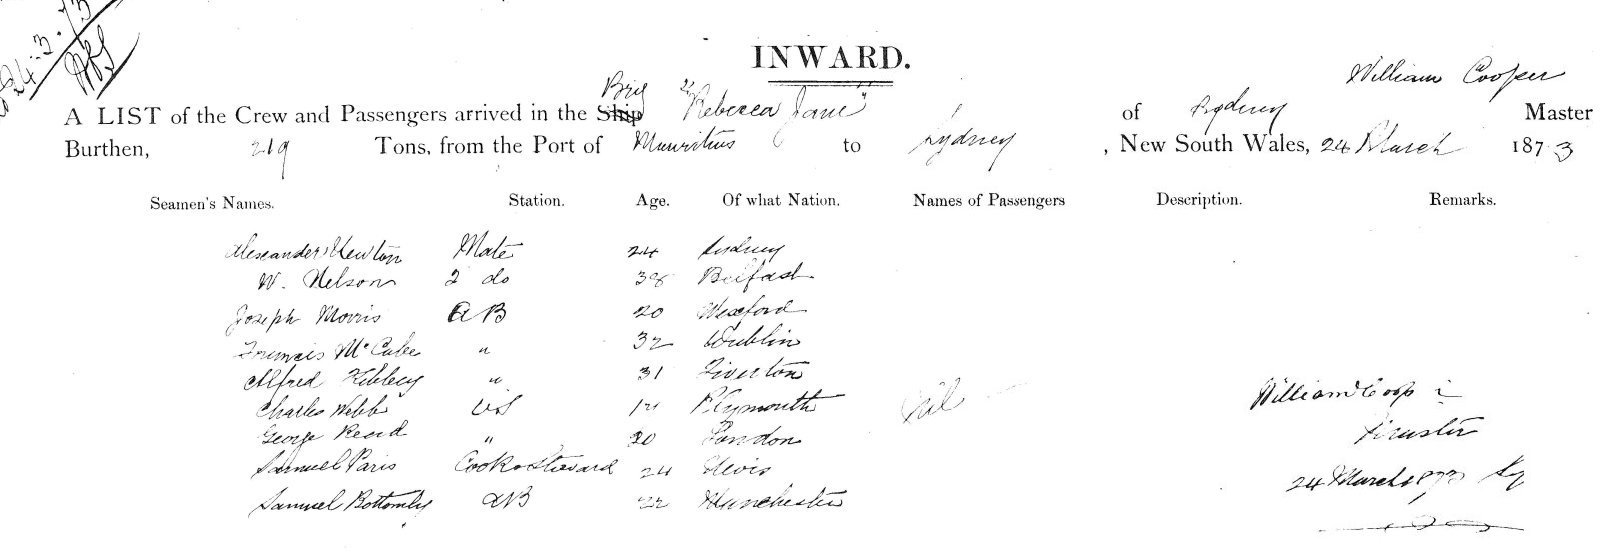 24.3.73
INWARD.
William Cooper
Brig "Rebecca Jane"
A LIST of the Crew and Passengers arrived in the Ship of Sydney Master
Burthen, 219 Tons, from the Port of Mauritius to Sydney, New South Wales, 24 March 1873
Seamen's Names. Station. Age. Of what Nation. Names of Passengers Description. Remarks.
Alexander Newton Mate 24 Sydney
W. Nelson 2 do 38 Belfast
Joseph Morris AB 20 Wexford
Francis McCabe " 32 Dublin
Alfred Kibbey " 31 Tiverton
Charles Webb OS Plymouth Nil William Cooper
George Reed " 20 London Master
Samuel Paris Cook & Steward 24 Nevis 24 March 1873 Sy
Samuel Bottomly AB 22 Manchester